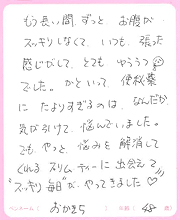 もう長い間、ずっと お腹が
スッキリしなくて、いつも、張った
感じがして、とても ゆううつ
でした。かといって、便秘薬
に たよりすぎるのは、なんだか
気がひけて、悩んでいました。
でも、やっと、悩みを 解消して
くれる スリムティーに 出会えて
"スッキリ毎日"が、やってきました♡
ペンネーム( おかきち )年齢( 48才 )